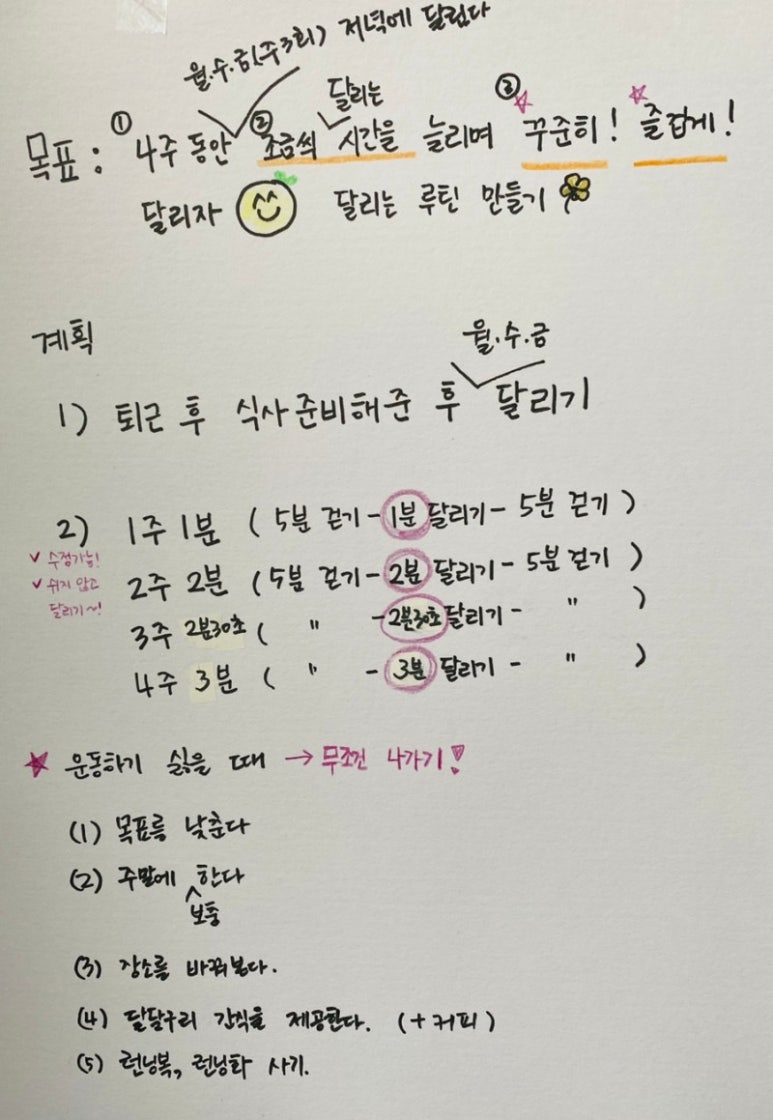 월.수.금(주3회) 저녁에 달린다
달리는
목표 : ① 4주 동안 ② 조금씩 시간을 늘리며 ③ 꾸준히! 즐겁게!
달리자 달리는 루틴 만들기
계획
월.수.금
1) 퇴근 후 식사준비해준 후 달리기
2) 1주 1분 ( 5분 걷기 - 1분 달리기 - 5분 걷기 )
✓ 수정가능!
✓ 쉬지 않고
달리기~!
2주 2분 (5분 걷기 - 2분 달리기 - 5분 걷기 )
3주 2분30초 ( " - 2분30초 달리기 - " )
4주 3분 ( " - 3분 달리기 - " )
★ 운동하기 싫을 때 → 무조건 나가기!
(1) 목표를 낮춘다
(2) 주말에 한다
보충
(3) 장소를 바꿔본다.
(4) 달달구리 간식을 제공한다. (+커피)
(5) 런닝복, 런닝화 사기.